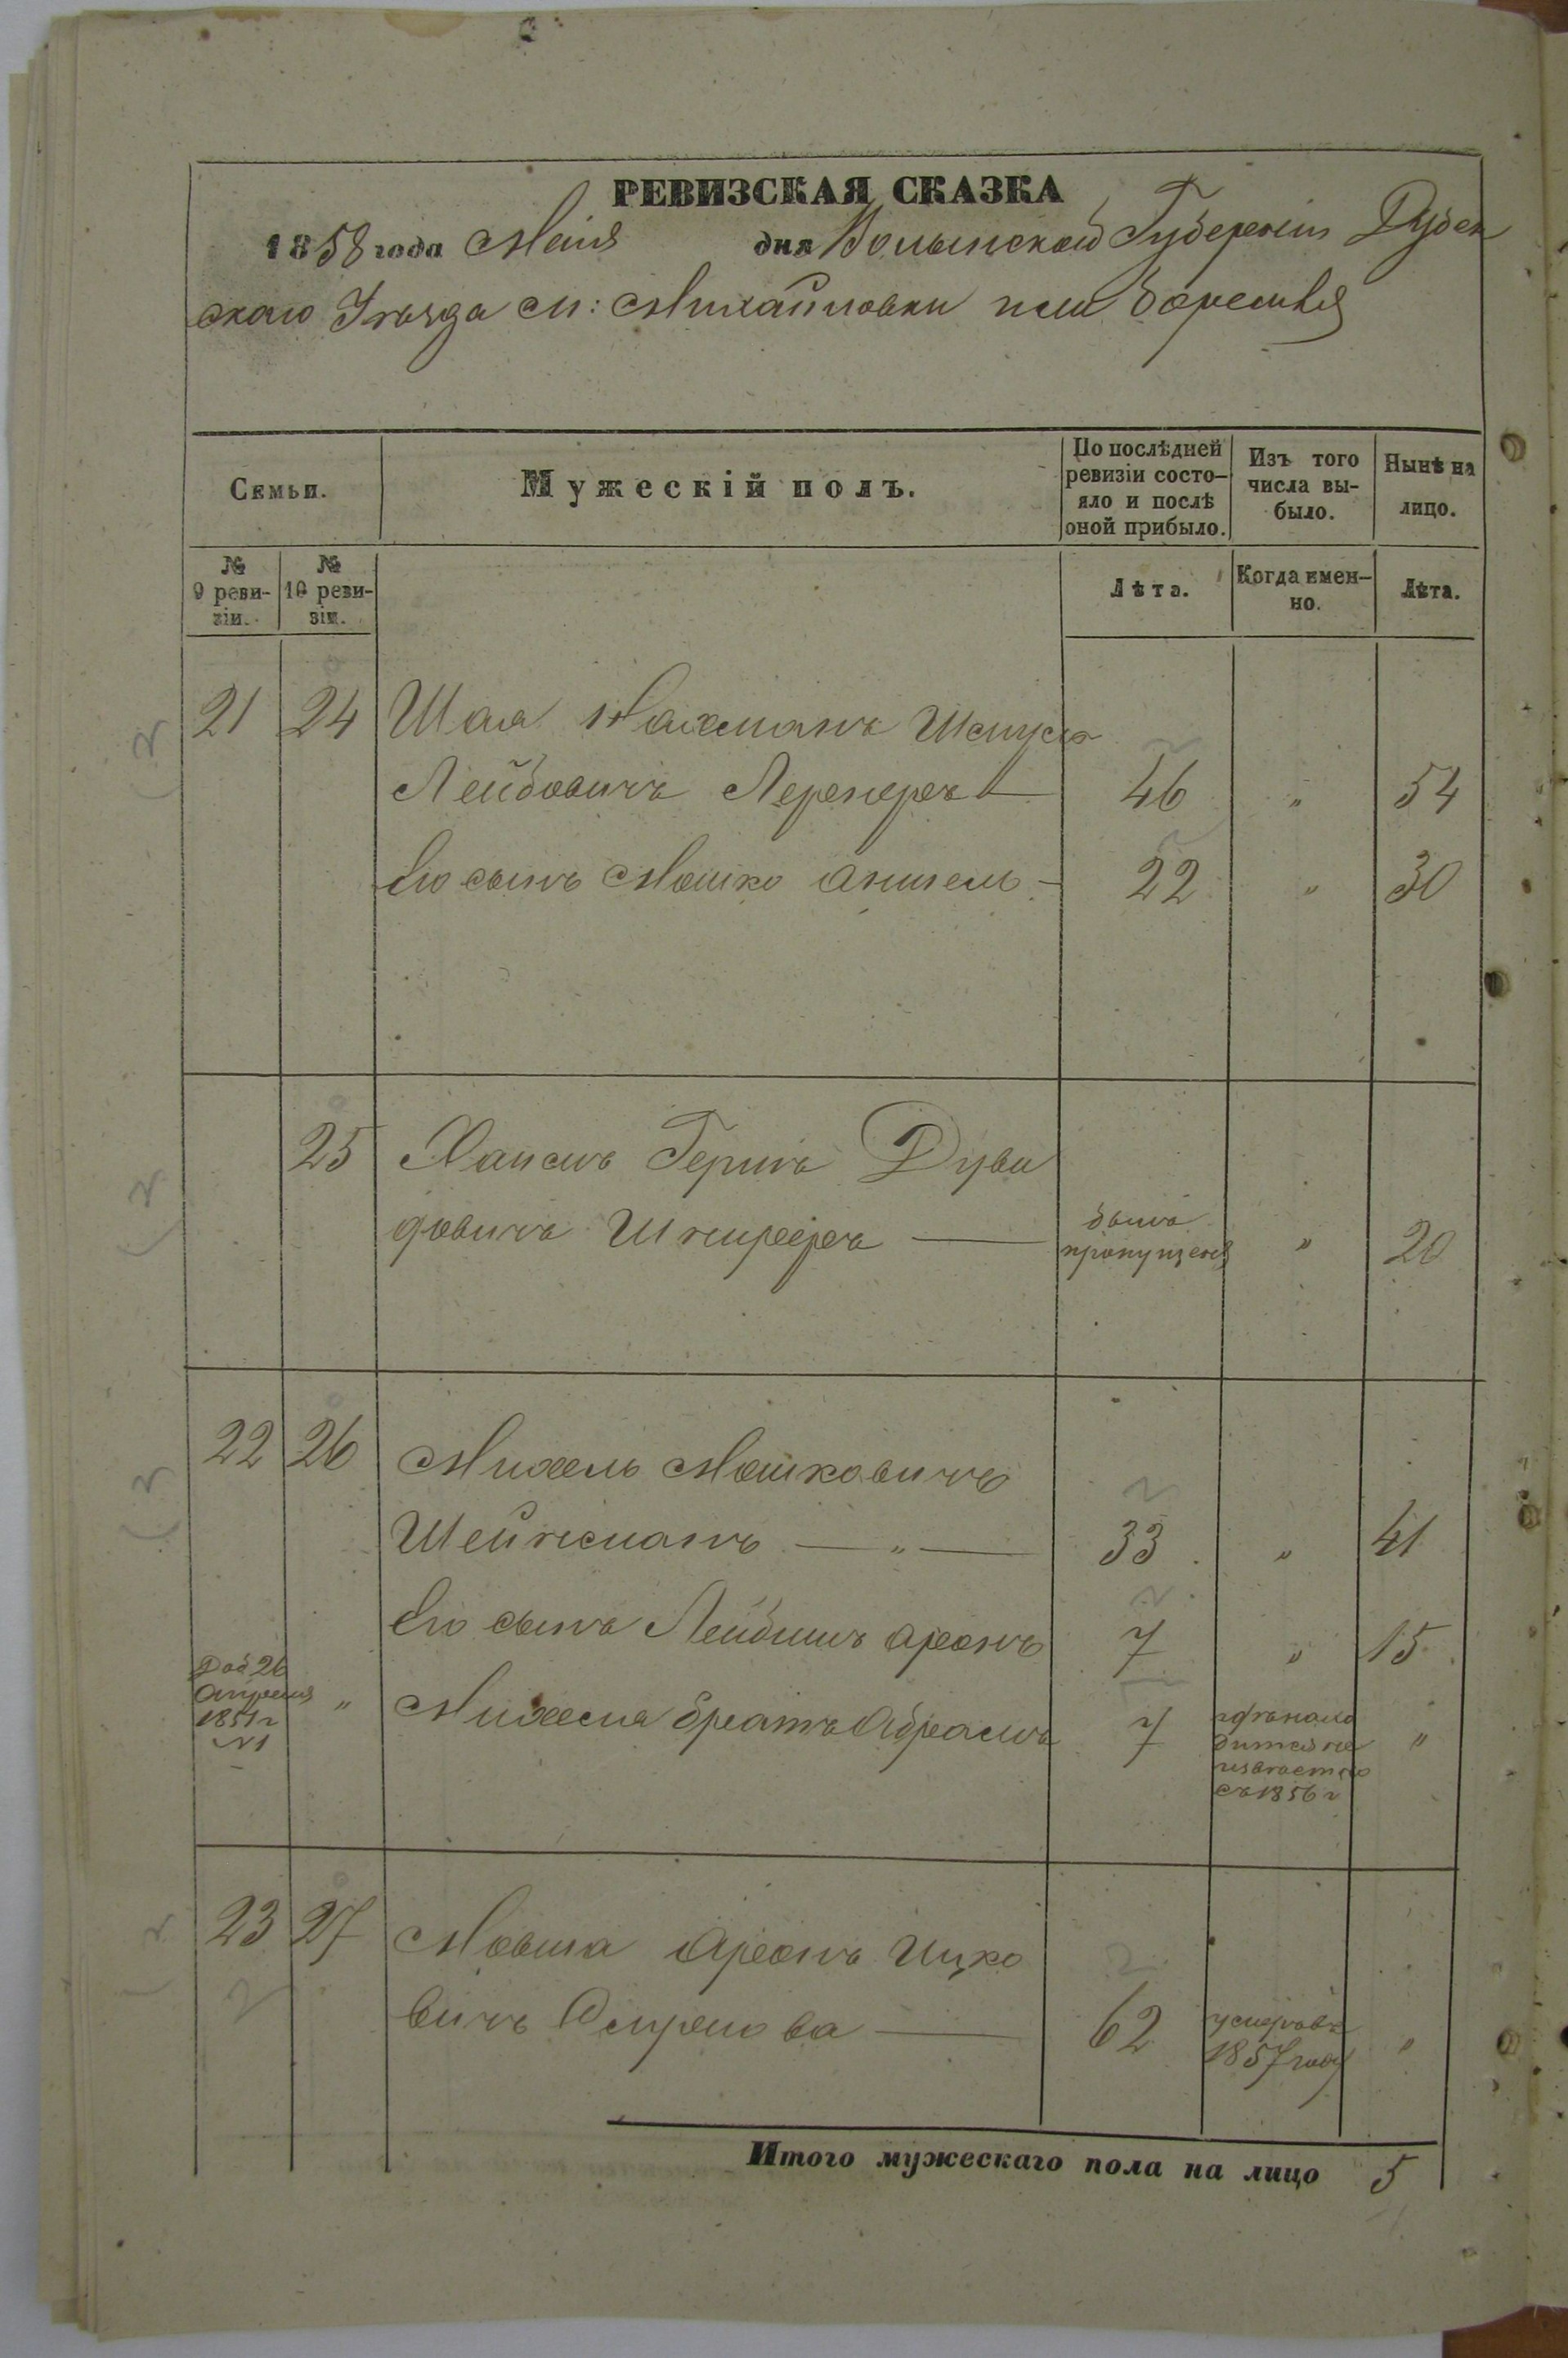 РЕВИЗСКАЯ СКАЗКА
1858 года Маія дня Волынской Губерніи Дубен
скаго Уѣзда м: Михайловки или Боремля
Семьи.
Мужескій полъ.
По послѣдней ревизіи состо-
яло и послѣ
оной прибыло.
Изъ того
числа вы-
было.
Нынѣ на
лицо.
№
9 реви-
зіи.
№
10 реви-
зіи.
Лѣта.
Когда имен-
но.
Лѣта.
21 24 Шая Нахманъ Шмуль
Лейбовичъ Лернеръ — 46 „ 54
Его сынъ Мошко Аншель - 22 „ 30
25 Хаимъ Гершъ Дуви
довичъ — былъ
пропущенъ „ 20
22 26 Михель Мошковичъ
Шейнманъ — „ — 33 „ 41
Его сынъ Лейбишъ Аронъ 7 „ 15
Доб 26
Апреля
1851 г
№1
„ Михеля братъ Абрамъ 7 гдѣ нахо
дится не
извѣстно
съ 1856 г „
23 27 Мовша Аронъ Ицко
вичъ — 62 умеръ въ
1857 году „
Итого мужескаго пола на лицо 5